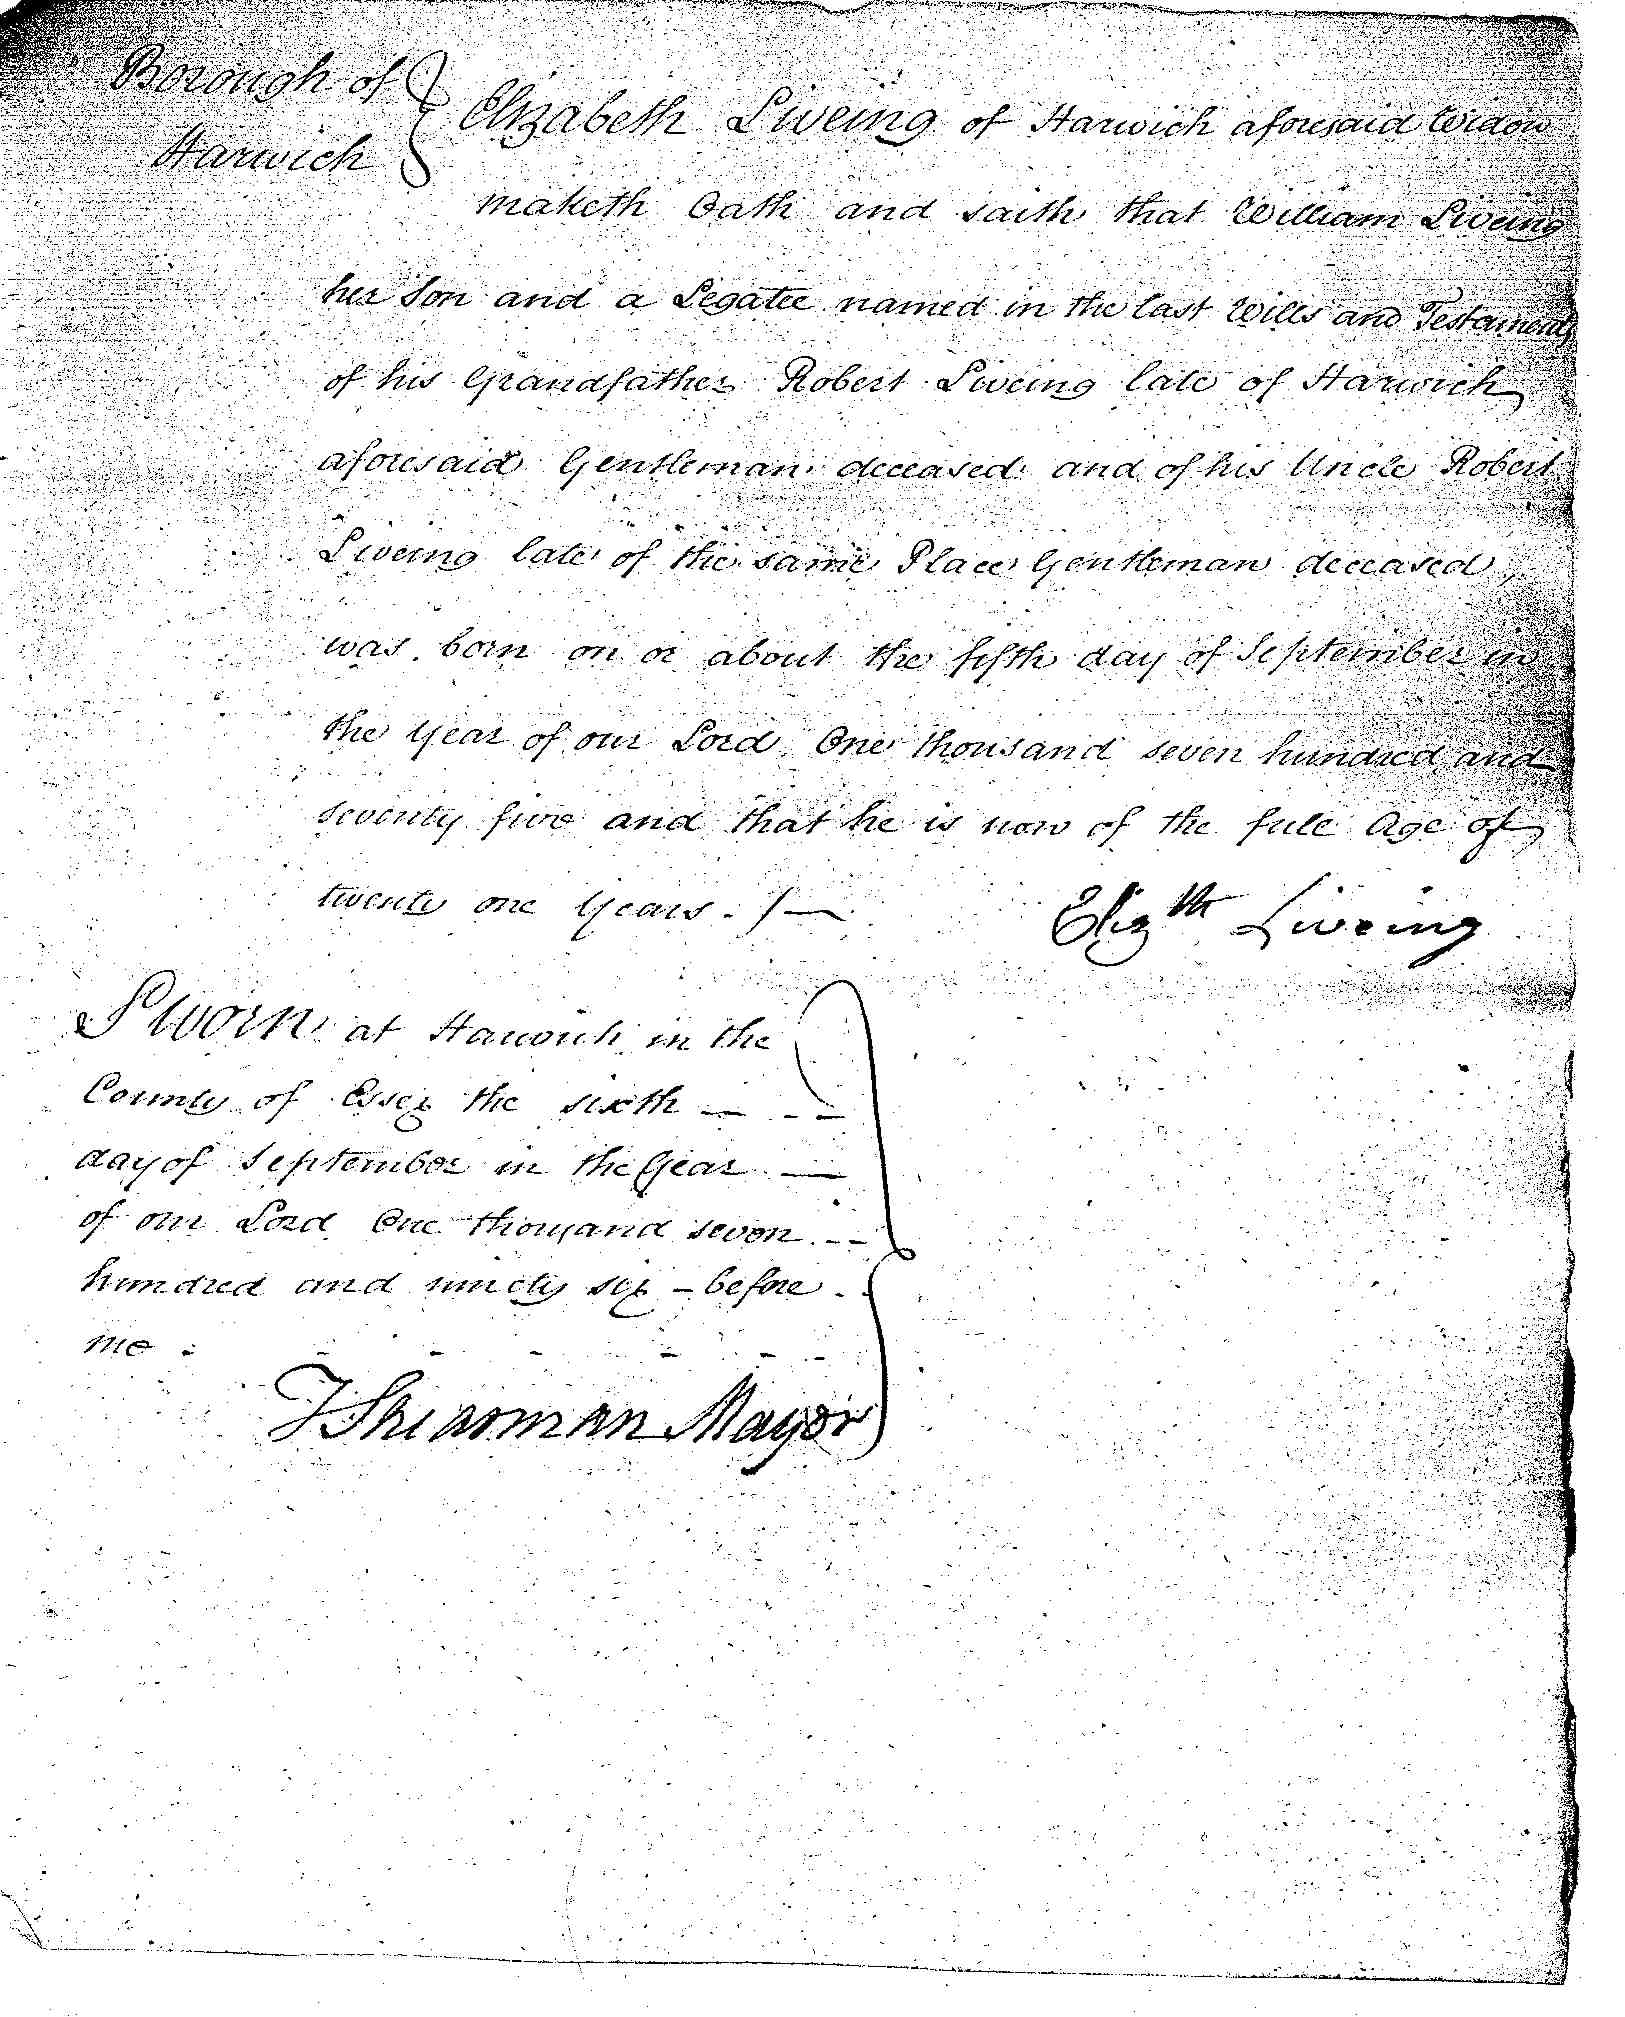 Borough of
Harwich
Elizabeth Liveing of Harwich aforesaid Widow
maketh Oath and saith that William Liveing
her Son and a Legatee named in the last Wills and Testaments
of his Grandfather Robert Liveing late of Harwich
aforesaid Gentleman deceased and of his Uncle Robert
Liveing late of the same Place Gentleman deceased,
was born on or about the fifth day of September in
the Year of our Lord One thousand seven hundred and
seventy five and that he is now of the full Age of
twenty one Years. /—
Elizth Liveing
Sworn at Harwich in the
County of Essex the sixth — - -
day of September in the Year —
of our Lord One thousand seven - -
hundred and ninety six - before - -
me - - - - - - - -
Mayor